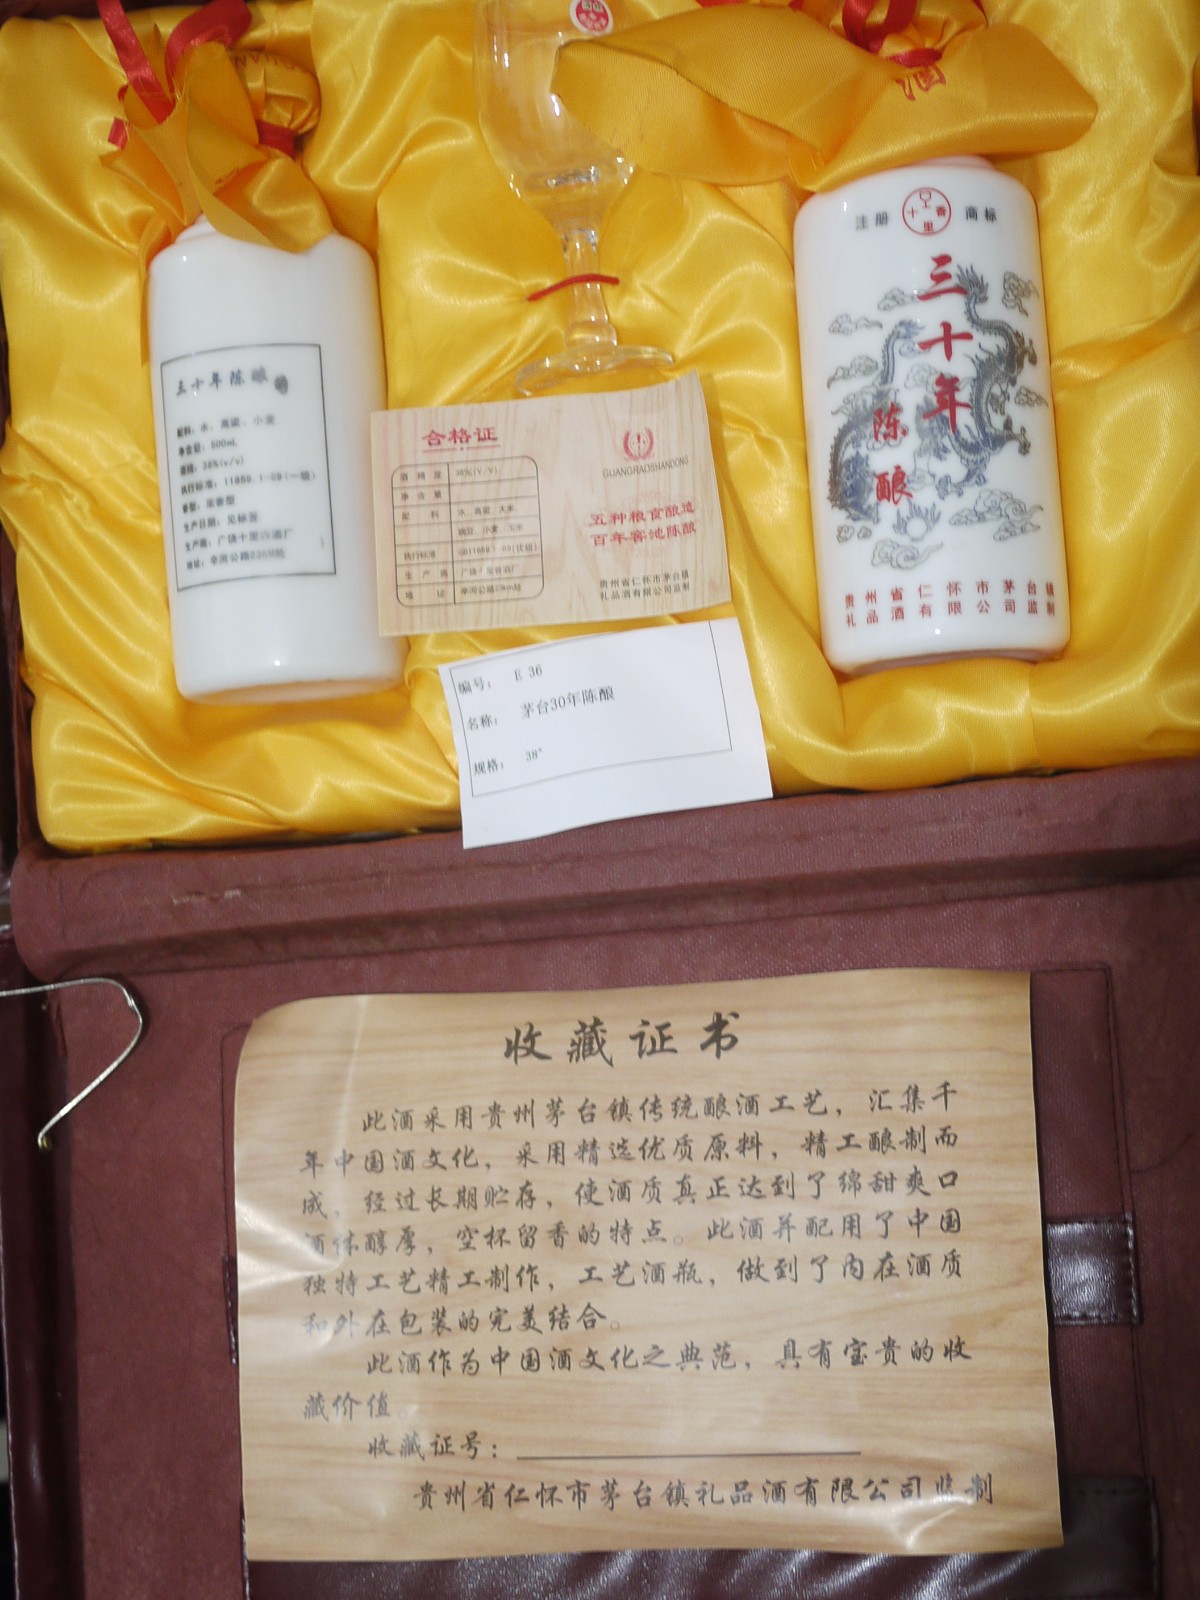 酒
注册 十里香 商标
三十年
陈酿
贵州省仁怀市茅台镇
礼品酒有限公司监制
三十年陈酿
配料：水、高粱、小麦
净含量：500mL
酒精：38%(v/v)
执行标准：11859.1-89(一级)
香型：浓香型
生产日期：见标签
合格证
酒精度 38%(V/V)
净含量
配料 水、高粱、大米
豌豆、小麦、玉米
执行标准
生产商
地址
GUANGRAOSHANDONG
五种粮食酿造
百年窖池陈酿
贵州省仁怀市茅台镇
礼品酒有限公司监制
编号： E 36
名称： 茅台30年陈酿
规格： 38°
收藏证书
此酒采用贵州茅台镇传统酿酒工艺，汇集千
年中国酒文化，采用精选优质原料，精工酿制而
成，经过长期贮存，使酒质真正达到了绵甜爽口
酒体醇厚，空杯留香的特点。此酒并配用了中国
独特工艺精工制作，工艺酒瓶，做到了内在酒质
和外在包装的完美结合。
此酒作为中国酒文化之典范，具有宝贵的收
藏价值。
收藏证号：
贵州省仁怀市茅台镇礼品酒有限公司监制